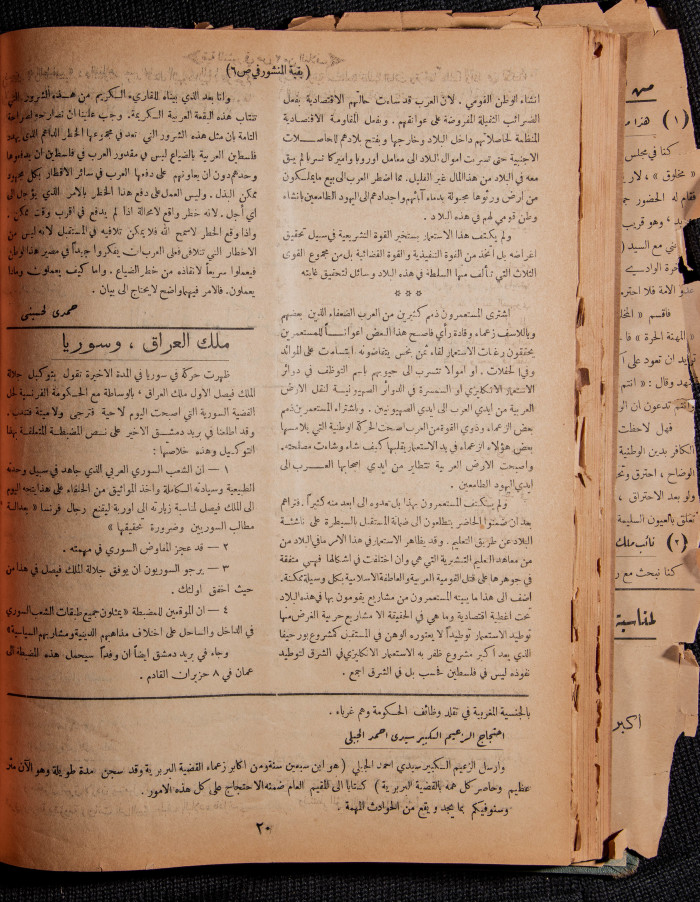 ( بقية المنشور في ص ٦ )
انشاء الوطن القومي . لان العرب قد ساءت حالتهم الاقتصادية بفعل
الضرائب الثقيلة المفروضة على عواتقهم . وبفعل المقاومة الاقتصادية
المنظمة لحاصلاتهم داخل البلاد وخارجها وبفتح بلادهم للحاصلات
الاجنبية حتى تسربت اموال البلاد الى معامل اوروبا واميركا تسربا لم يبق
معه في البلاد من هذا المال غير القليل. مما اضطر العرب الى بيع ما يملكون
من ارض ورثوها مجبولة بدماء آبائهم واجدادهم الى اليهود الطامعين بانشاء
وطن قومي لهم في هذه البلاد .
ولم يكتف هذا الاستعمار بتسخير القوة التشريعية في سبيل تحقيق
اغراضه بل اتخذ من القوة التنفيذية والقوة القضائية بل من مجموع القوى
الثلاث التي تتألف منها السلطة في هذه البلاد وسائل لتحقيق غايته
* * *
اشترى المستعمرون ذمم كثيرين من العرب الضعفاء الذين بعضهم
وياللاسف زعماء وقادة رأي فاصبح هذا البعض اعواناً للمستعمرين
يحققون رغبات الاستعمار لقاء ثمن بخس يتقاضونه ابتسامات على الموائد
وفي الحفلات . او اموالا تتسرب الى جيوبهم باسم التوظف في دوائر
الاستعمار الانكليزي او السمسرة في الدوائر الصهيونية لنقل الارض
العربية من ايدي العرب الى ايدي الصهيونيين . وباشتراء المستعمرين ذمم
بعض الزعماء وذوي القوة من العرب اصبحت الحركة الوطنية التي يلامسها
بعض هؤلاء الزعماء في يد الاستعمار يقلبها كيف شاء وشاءت مصلحته.
واصبحت الارض العربية تتطاير من ايدي اصحابها العـرب الى
ايدي اليهود الطامعين .
ولم يكتف المستعمرون بهذا بل تعدوه الى ابعد منه كثيراً . فتراهم
بعد ان ضمنوا الحاضر يتطلعون الى ضمانة المستقبل السيطرة على ناشئة
البلاد عن طريق التعليم . وقد يظاهر الاستعمار في هذا الامر ما في البلاد من
من معاهد التعليم التبشيرية التي هي وان اختلفت في اشكالها فهي متفقة
في جوهرها على قتل القومية العربية والعاطفة الاسلامية بكل وسيلة ممكنة.
اضف الى هذا ما يبيته المستعمرون من مشاريع يقومون بها في هذه البلاد
تحت اغطية اقتصادية وما هي في الحقيقة الا مشاريع حربية الغرض منها
توطيد الاستعمار توطيداً لا يعتوره الوهن في المستقبل كمشروع بور حيفا
الذي يعد اكبر مشروع ظفر به الاستعمار الانكليزي في الشرق لتوطيد
نفوذه ليس في فلسطين فحسب بل في الشرق اجمع .
وانا بعد الذي بيناه للقارىء الكريم من هذه الشرور التي
تنتاب هذه البقعة العربية الكريمة. وجب علينا ان نصارحه صراحة
التامة بان مثل هذه الشرور التي تعد في مجموعها الخطر الداهم الذي يهدد
فلسطين العربية بالضياع ليس في مقدور العرب في فلسطين ان يدفعوها
وحدهم دون ان يعاونهم على دفعها العرب في سائر الاقطار بكل مجهود
ممكن البذل . وليس العمل على دفع هذا الخطر بالامر الذي يؤجل الى
اي أجل . لانه خطر واقع لا محالة اذا لم يدفع في اقرب وقت ممكن .
واذا وقع الخطر لاسمح الله فلا يمكن تلافيه في المستقبل لانه ليس من
الاخطار التي تتلافى فعلى العرب ان يفكروا جيداً في مصير هذا الوطن
فيعملوا سريعاً لانقاذه من خطر الضياع . واما كيف يعملون وماذا
يعملون. فالامر فيهما واضح لا يحتاج الى بيان .
حمدي الحسيني
ملك العراق ، وسوريا
ظهرت حركة في سوريا في المدة الاخيرة تقول بتوكيل جلالة
الملك فيصل الاول ملك العراق ، بالوساطة مع الحكومة الفرنسية لحل
القضية السورية التي اصبحت اليوم لا حية فترجى ولا ميتة فتندب .
وقد اطلعنا في بريد دمشق الاخير على نص المضبطة المتعلقة بهذا
التوكيل وهذه خلاصتها :
١ — ان الشعب السوري العربي الذي جاهد في سبيل وحدته
الطبيعية وسيادته الكاملة واخذ المواثيق من الحلفاء على هذا يتجه اليوم
الى الملك فيصل لمناسبة زيارته الى اوربة ليقنع رجال فرنسا « بعدالة
مطالب السوريين وضرورة تحقيقها »
٢ — قد عجز المفاوض السوري في مهمته .
٣ — يرجو السوريون ان يوفق جلالة الملك فيصل في هذا من
حيث اخفق اولئك .
٤ — ان الموقعين للمضبطة « يمثلون جميع طبقات الشعب السوري
في الداخل والساحل على اختلاف مذاهبهم الدينية ومشاربهم السياسية»
وجاء في بريد دمشق ايضاً ان وفداً سيحمل هذه المضبطة الى
عمان في ٨ حزيران القادم .
بالجنسية المغربية في تقلد وظائف الحكومة وهم غرباء .
احتجاج الزعيم الكبير سيدي احمد الجبلي
وارسل الزعيم الكبير سيدي احمد الجبلي ( هو ابن سبعين سنة ومن اكابر زعماء القضية البربرية وقد سجن لمدة طويلة وهو الآن مثر
عظيم وحاصر كل همه بالقضية البربرية ) كتابا الى المقيم العام ضمنه الاحتجاج على كل هذه الامور .
وسنوفيكم بما يجد ويقع من الحوادث المهمة .
٢٠
من
( ١ ) هذا
كنا في مجلس
« مخلوق » ، لا
فقام له الحضور
، وهو قريب
مع السيد (
الوادي
الامة فلا احترم
فاقسم «
« المهنة الحرة »
ان تعود على
وقال : « انتم
تدعون ان
فهل لاحظت
الكافر بدين الوطنية
الوضاح ، احترق
ولو بعد الاحتراق ،
بالعيون السليمة
( ٢ ) نائب ملك
كنا نبحث مع
لمناسبة
اكبر